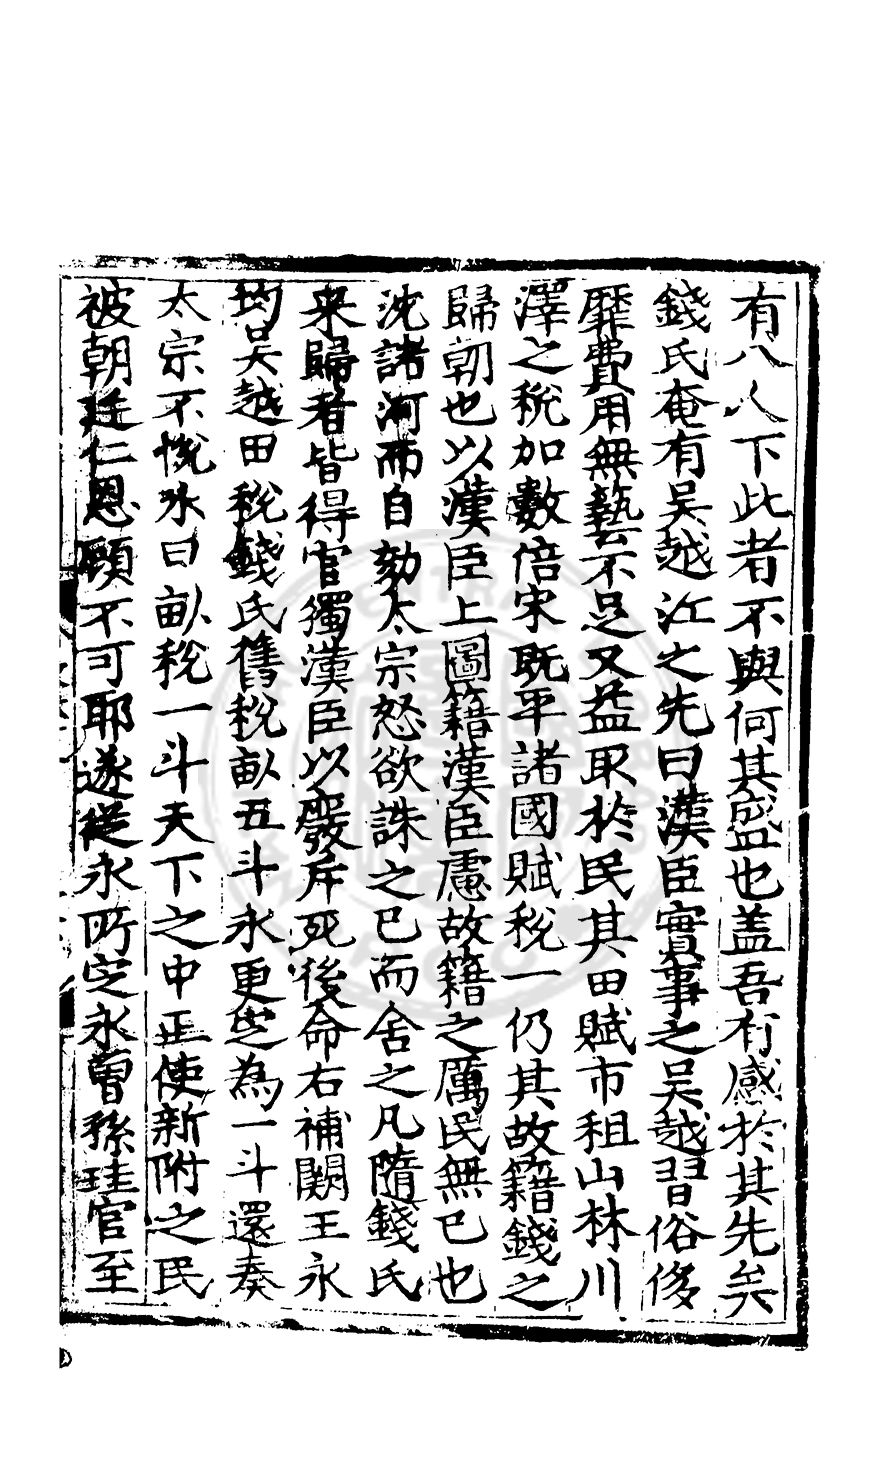 有八人下此者不與何其盛也盖吾有感於其先矣
錢氏奄有吳越江之先曰漢臣實事之吳越習俗侈
靡費用無藝不足又益取於民其田賦市租山林川
澤之稅加數倍宋既平諸國賦稅一仍其故籍錢之
歸朝也以漢臣上圖籍漢臣慮故籍之厲民無已也
沈諸河而自劾太宗怒欲誅之已而舍之凡隨錢氏
来歸者皆得官獨漢臣以廢斥死後命右補闕王永
均吳越田稅錢氏舊稅畝五斗永更定為一斗還奏
太宗不悅永曰畝稅一斗天下之中正使新附之民
被朝廷仁恩顧不可耶遂從永所定永曾孫珪官至